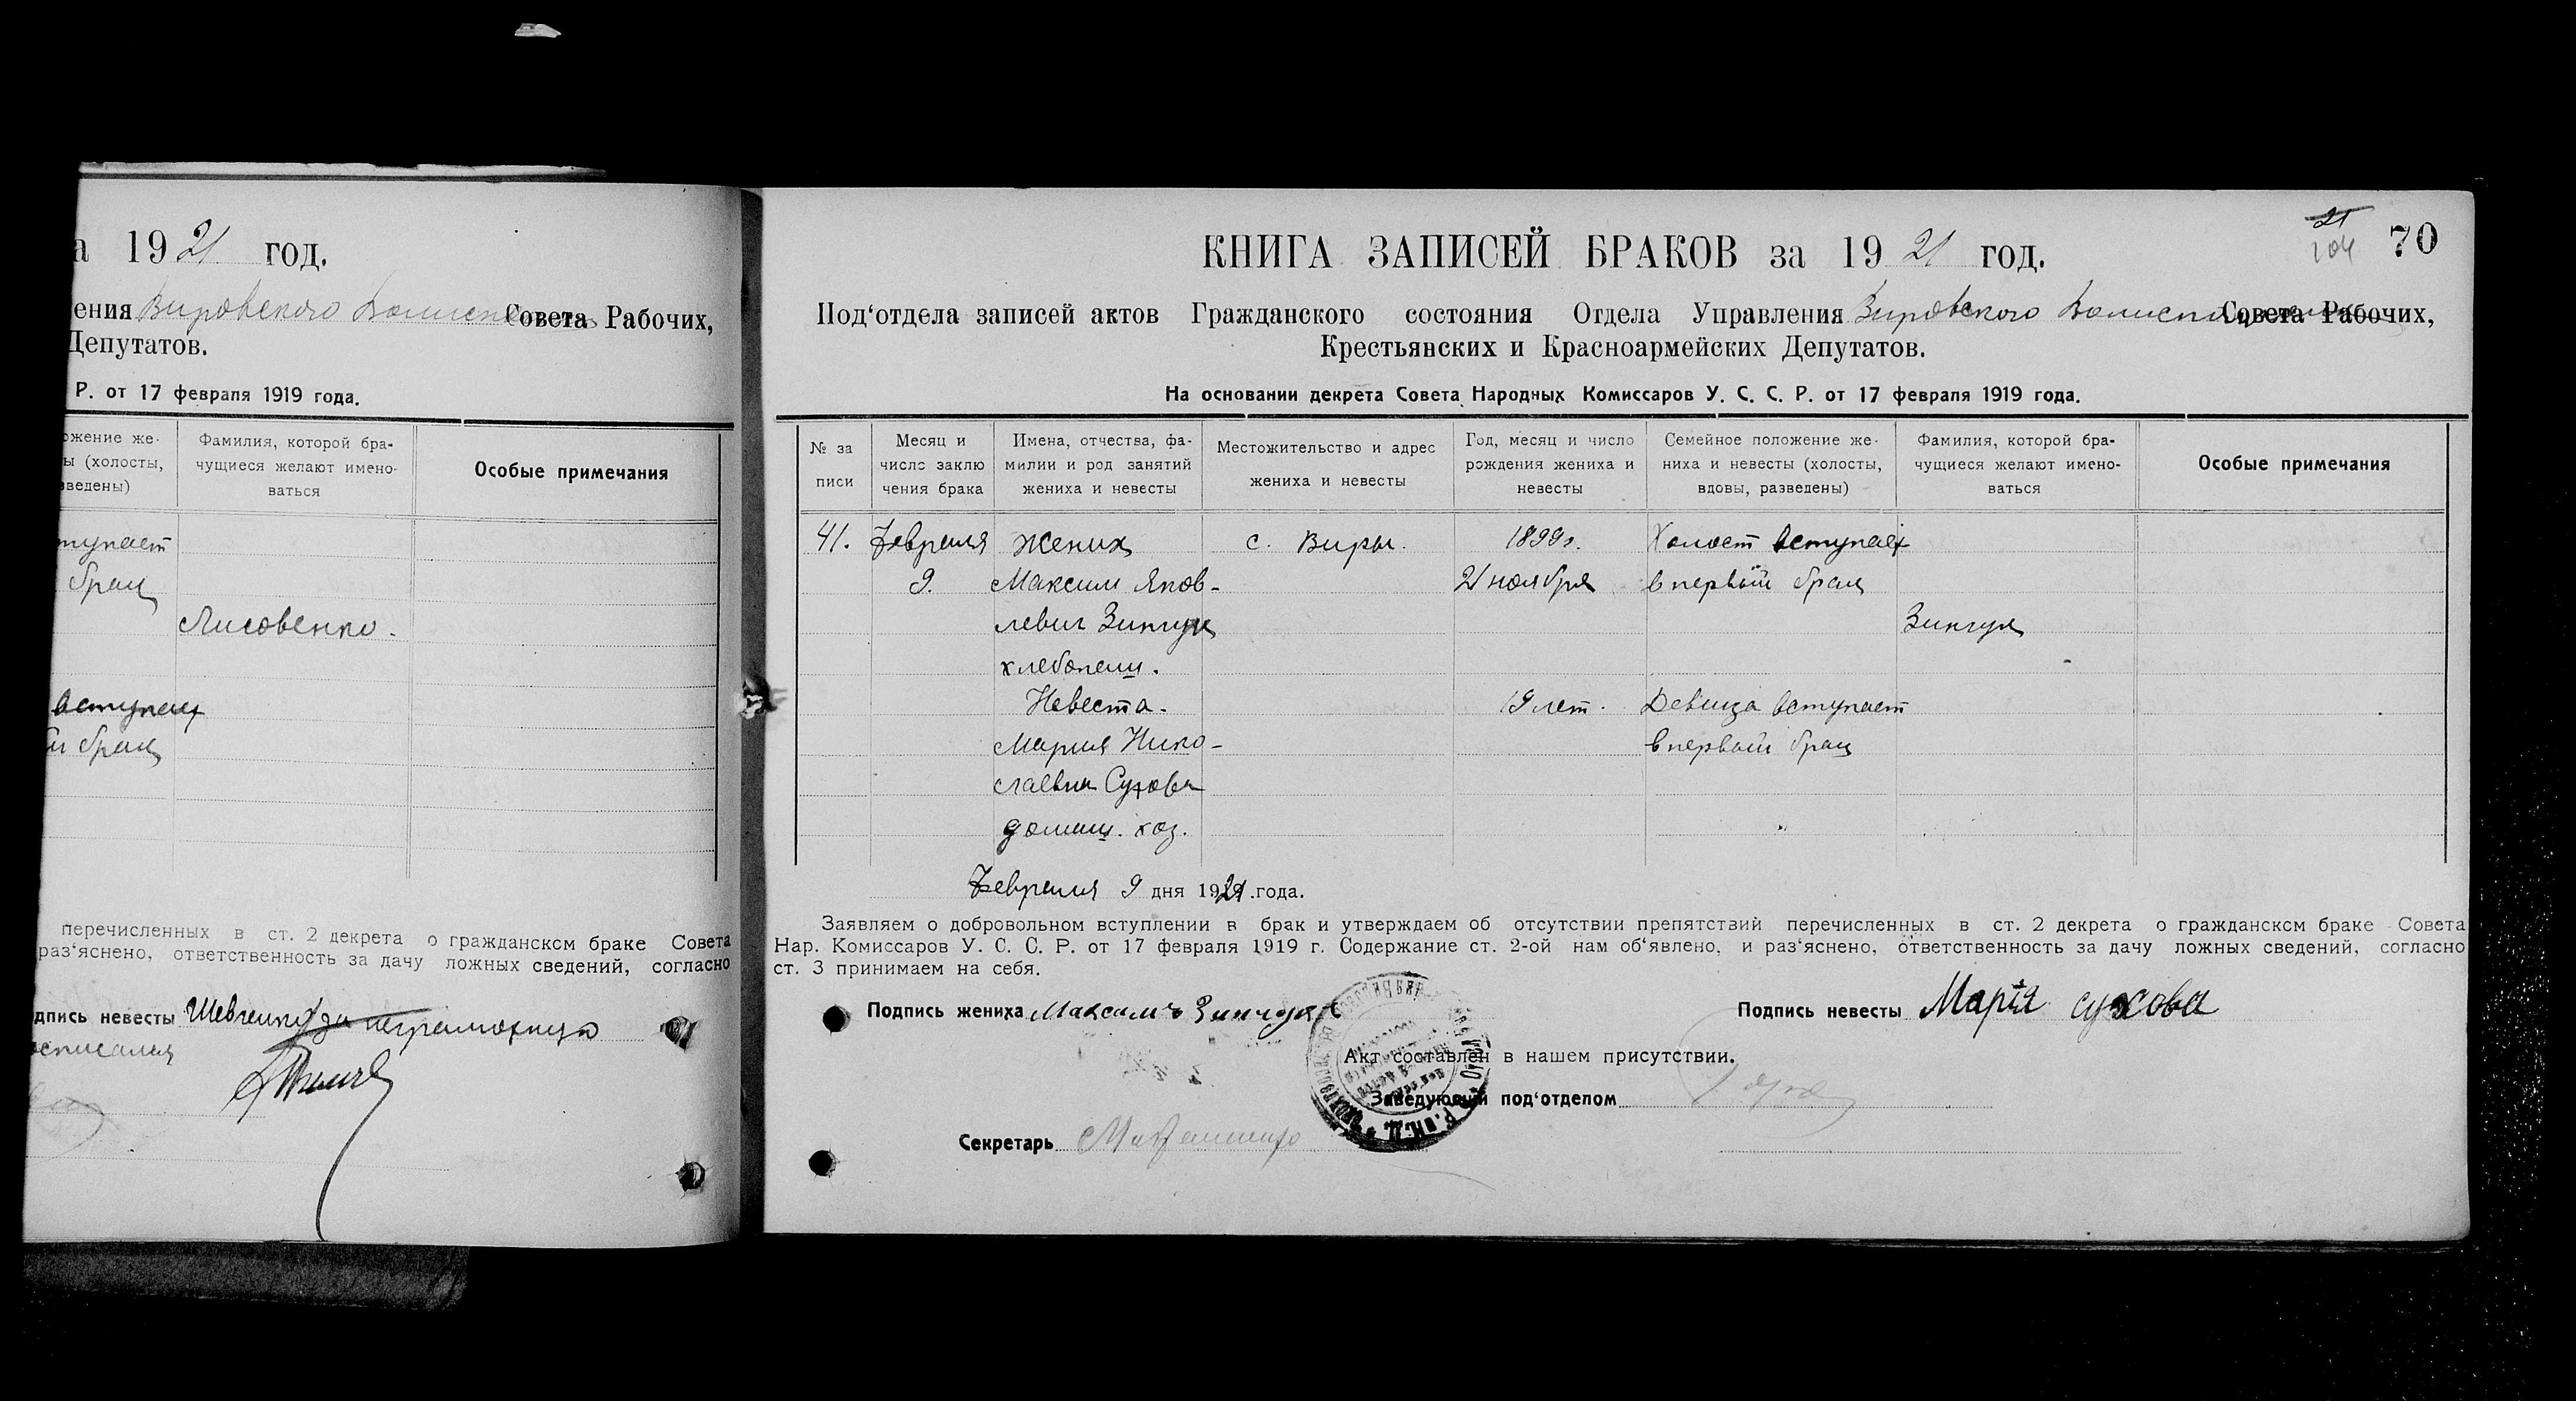 а 1921 год.
ения Вировского Волисполкома Совета Рабочих,
Депутатов.
Р. от 17 февраля 1919 года.
ожение же-
ы (холосты,
зведены)
Фамилия, которой бра-
чущиеся желают имено-
ваться
Особые примечания
тупает
брак
Лисовенко.
вступает
брак
перечисленных в ст. 2 декрета о гражданском браке Совета
раз‘яснено, ответственность за дачу ложных сведений, согласно
дпись невесты Шевченко за неграмотную
росписался
21
104
70
КНИГА ЗАПИСЕЙ БРАКОВ за 1921 год.
Под‘отдела записей актов Гражданского состояния Отдела Управления Вировского Волисполкома Совета Рабочих,
Крестьянских и Красноармейских Депутатов.
На основании декрета Совета Народных Комиссаров У. С. С. Р. от 17 февраля 1919 года.
№ за
писи
Месяц и
число заклю
чения брака
Имена, отчества, фа-
милии и род занятий
жениха и невесты
Местожительство и адрес
жениха и невесты
Год, месяц и число
рождения жениха и
невесты
Семейное положение же-
ниха и невесты (холосты,
вдовы, разведены)
Фамилия, которой бра-
чущиеся желают имено-
ваться
Особые примечания
41. Февраля Жених с. Виры. 1899г. Холост вступает
9. Максим Яков- 21 ноября в первый брак
левич Зинчук Зинчук
хлебопаш.
Невеста. 19 лет. Девица вступает
Мария Нико- в первый брак
лаевна Сухова
домаш. хоз.
Февраля 9 дня 1921 года.
Заявляем о добровольном вступлении в брак и утверждаем об отсутствии препятствий перечисленных в ст. 2 декрета о гражданском браке Совета
Нар. Комиссаров У. С. С. Р. от 17 февраля 1919 г. Содержание ст. 2-ой нам об‘явлено, и раз‘яснено, ответственность за дачу ложных сведений, согласно
ст. 3 принимаем на себя.
Подпись жениха Максимъ Зинчукъ Подпись невесты Марія сухова
Акт составлен в нашем присутствии.
Заведующий под‘отделом
Секретарь